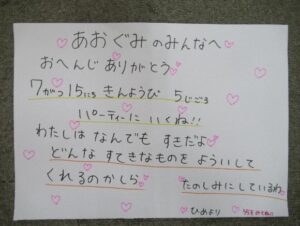 あおぐみのみんなへ
おへんじ ありがとう
7がつ15にち きんようび 5じごろ
パーティーに いくね!!
わたしは なんでも すきだよ
どんな すてきなものを よういして
くれるのかしら
たのしみにしているわ
ひめより